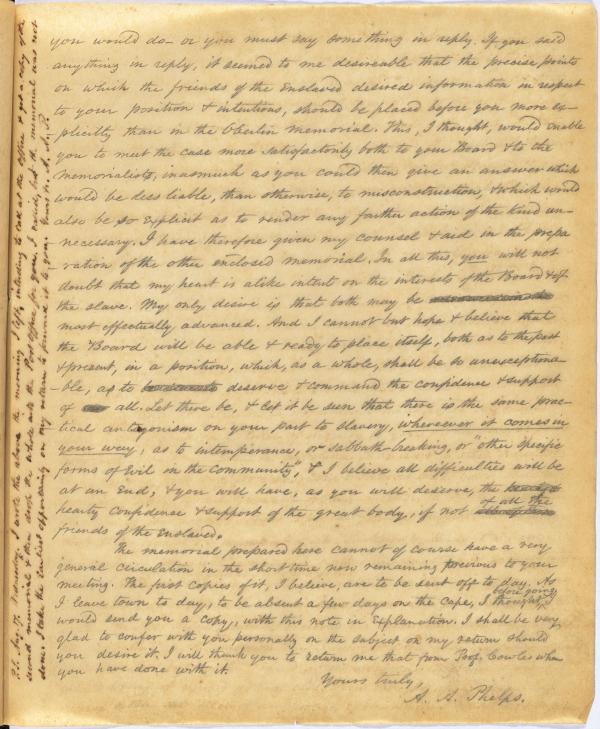 you would do— or you must say something in reply. If you said
anything in reply, it seemed to me desireable that the precise points
on which the friends of the enslaved desired information in respect
to your position & intentions, should be placed before you more ex-
plicitly than in the Oberlin memorial. This, I thought, would enable
you to meet the case more satisfactorily both to your Board & to the
memorialists, inasmuch as you could then give an answer which
would be less liable, than otherwise, to misconstruction, & which would
also be so explicit as to render any farther action of the kind un-
necessary. I have therefore given my counsel & aid in the prepa-
ration of the other enclosed memorial. In all this, you will not
doubt that my heart is alike intent on the interests of the Board & of
the slave. My only desire is that both may be
most effectually advanced. And I cannot but hope & believe that
the Board will be able & ready to place itself, both as to the past
& present, in a position, which, as a whole, shall be so unexceptiona-
ble, as to deserve & command the confidence & support
of all. Let there be, & let it be seen that there is the same prac-
tical antagonism on your part to slavery, wherever it comes in
your way, as to intemperance, or sabbath-breaking, or "other specific
forms of Evil in the community", & I believe all difficulties will be
at an End, & you will have, as you will deserve, the
hearty confidence & support of the great body, if not of all the
friends of the Enslaved.
The memorial prepared here cannot of course have a very
general circulation in the short time now remaining previous to your
meeting. The first copies of it, I believe, are to be sent off to day. As
I leave town to day, to be absent a few days on the Cape, I thought before going I
would send you a copy, with this note in Explanation. I shall be very
glad to confer with you personally on the subject on my return should
you desire it. I will thank you to return me that from Prof. Cowles when
you have done with it.
Yours truly,
A. A. Phelps.
P.S. Aug. 17. I wrote the above the morning I left, intending to call at the office & get a copy of the
second memorial & then leave the whole into the Post Office for you. I called, but the memorial was not
done. I take the earliest opportunity on my return to forward it to you. Yours &c. A. A. P.